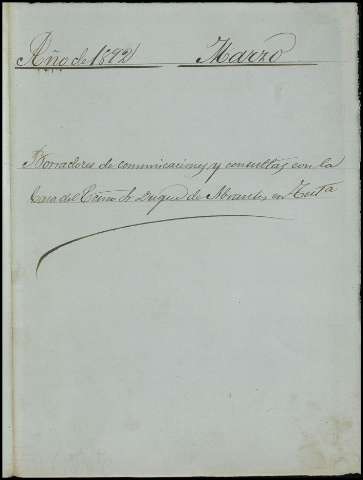 Año de 1892 Marzo
Borradores de comunicaciones y consultas con la
Casa del Exmo Sr Duque de Abrantes en